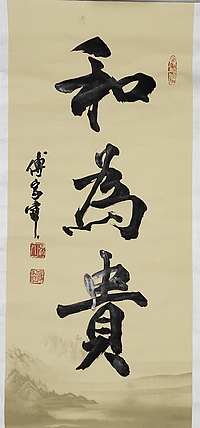 和為貴
傅家寶